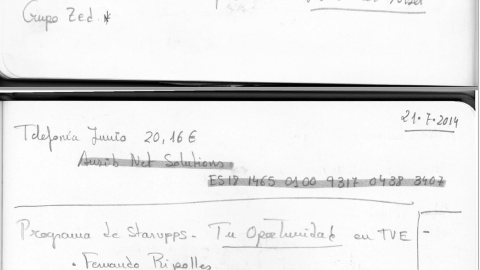 Grupo Zed *
21.7.2014
Telefonía Junio 20,16 €
Ausib Net Solutions
ES18 1465 0100 9317 0438 3407
Programa de Starupps - Tu Oportunidad en TVE
• Fernando